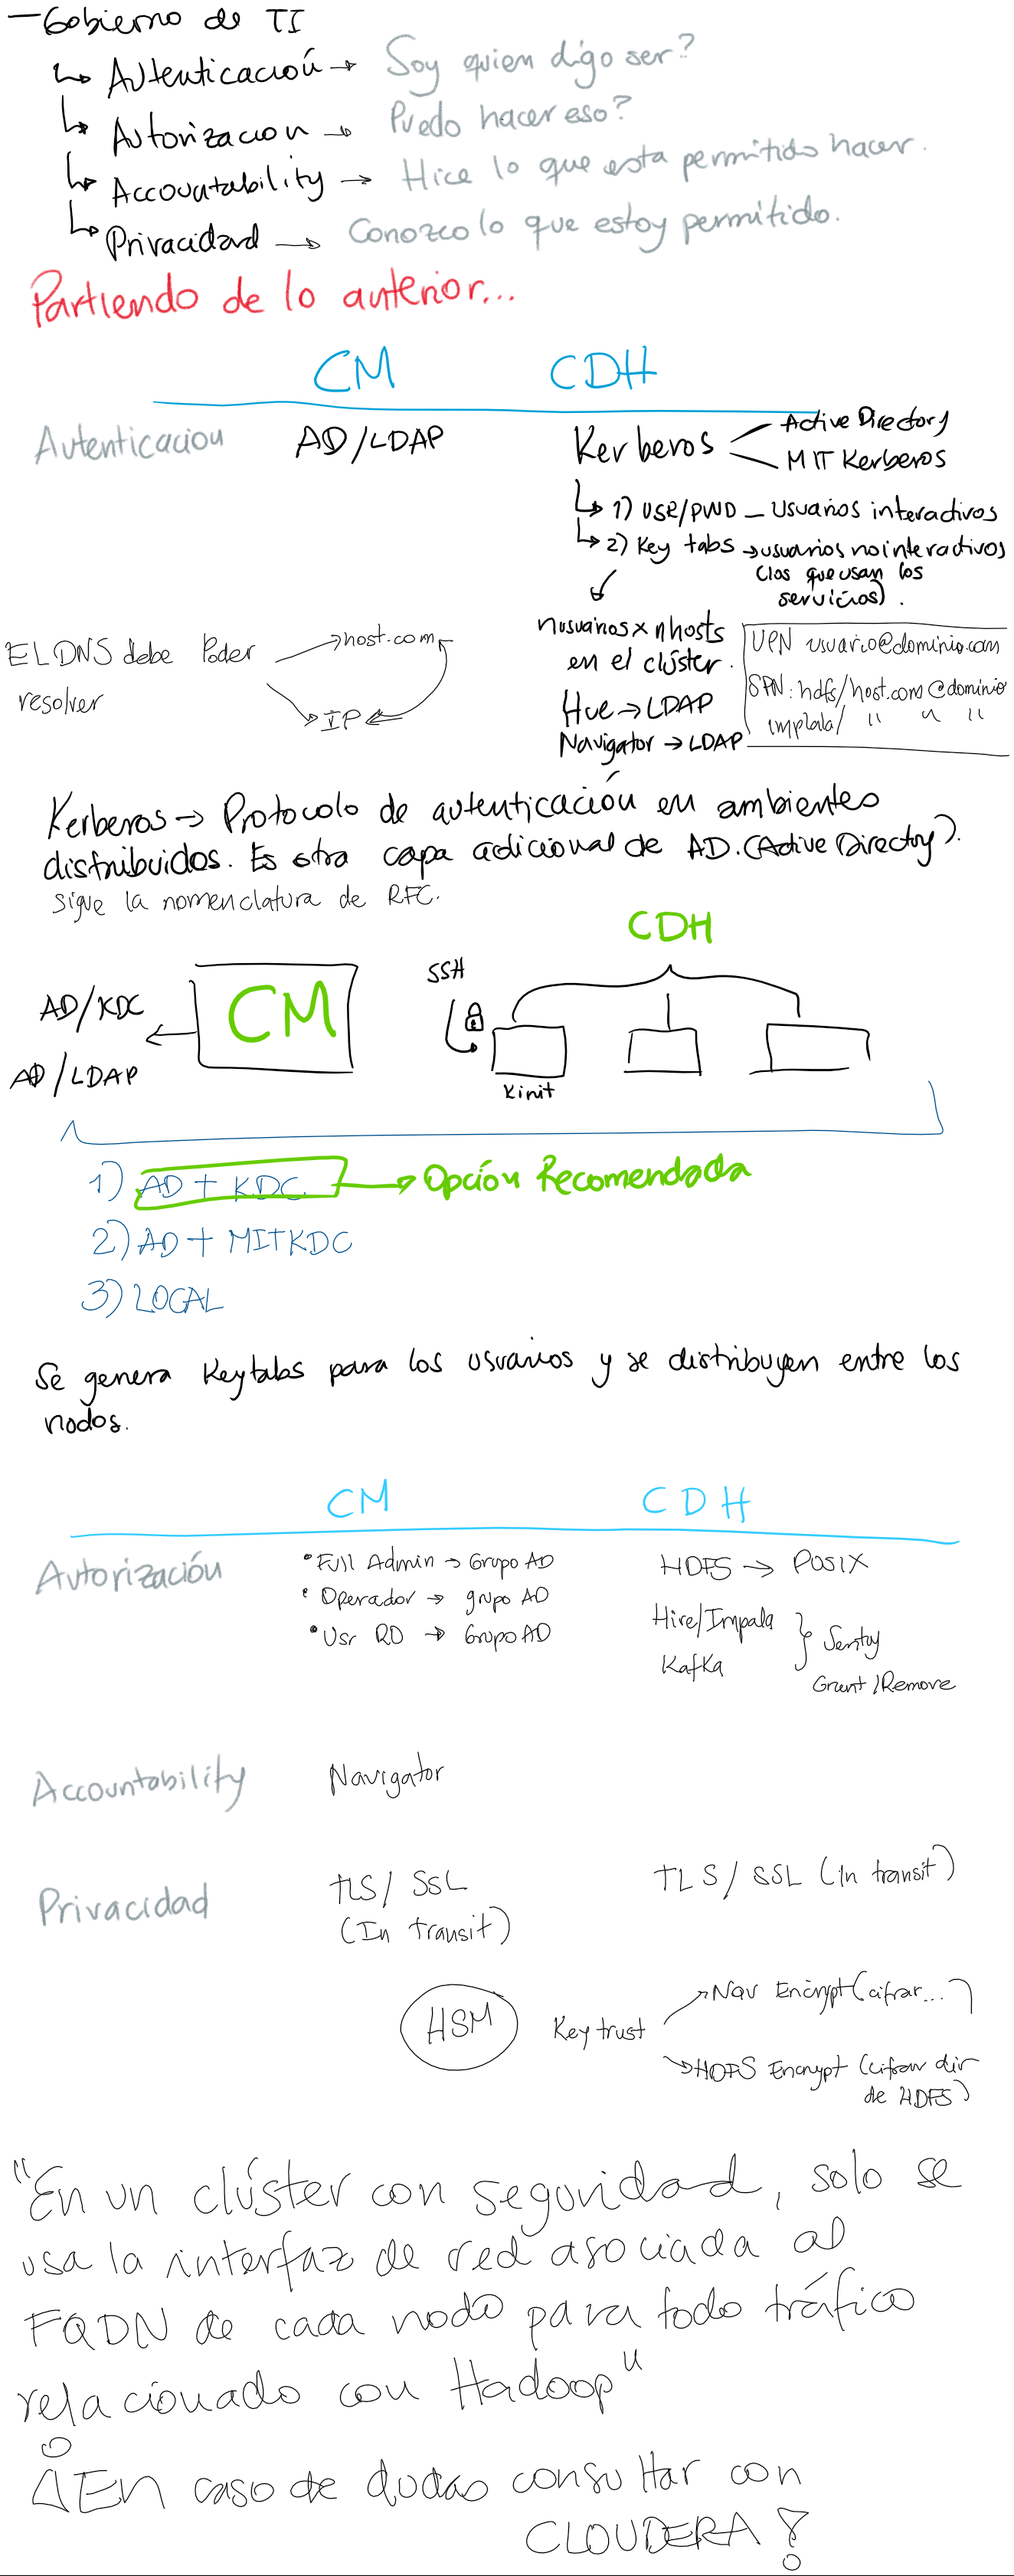 - Gobierno de TI
↳ Autenticación → Soy quien digo ser?
↳ Autorizacion → Puedo hacer eso?
↳ Accountability → Hice lo que esta permitido hacer.
↳ Privacidad → Conozco lo que estoy permitido.
Partiendo de lo anterior...
CM CDH
Autenticacion AD/LDAP Kerberos
Active Directory
MIT Kerberos
↳ 1) USR/PWD - Usuarios interactivos
↳ 2) Key tabs → usuarios no interactivos
(los que usan los
servicios).
nusuarios x nhosts
en el clúster.
Hue → LDAP
Navigator → LDAP
UPN usuario@dominio.com
SPN: hdfs/host.com@dominio
impala/ " " "
EL DNS debe Poder
resolver
→ host.com
→ IP
Kerberos → Protocolo de autenticación en ambientes
distribuidos. Es otra capa adicional de AD. (Active Directory).
sigue la nomenclatura de RFC.
CDH
SSH
AD/KDC
CM
AD/LDAP
Kinit
1) AD + KDC. → Opción Recomendada
2) AD + MITKDC
3) LOCAL
Se genera Keytabs para los usuarios y se distribuyen entre los
nodos.
CM CDH
Autorización
• Full Admin → Grupo AD
• Operador → grupo AD
• Usr RO → Grupo AD
HDFS → POSIX
Hive/Impala
Kafka
} Sentry
Grant / Remove
Accountability Navigator
Privacidad
TLS/ SSL
(In transit)
TLS / SSL (In transit)
HSM Key trust
→ Nav Encrypt (cifrar...)
→ HDFS Encrypt (cifrar dir
de HDFS)
"En un clúster con seguridad, solo se
usa la interfaz de red asociada al
FQDN de cada nodo para todo tráfico
relacionado con Hadoop"
¡En caso de dudas consultar con
CLOUDERA!